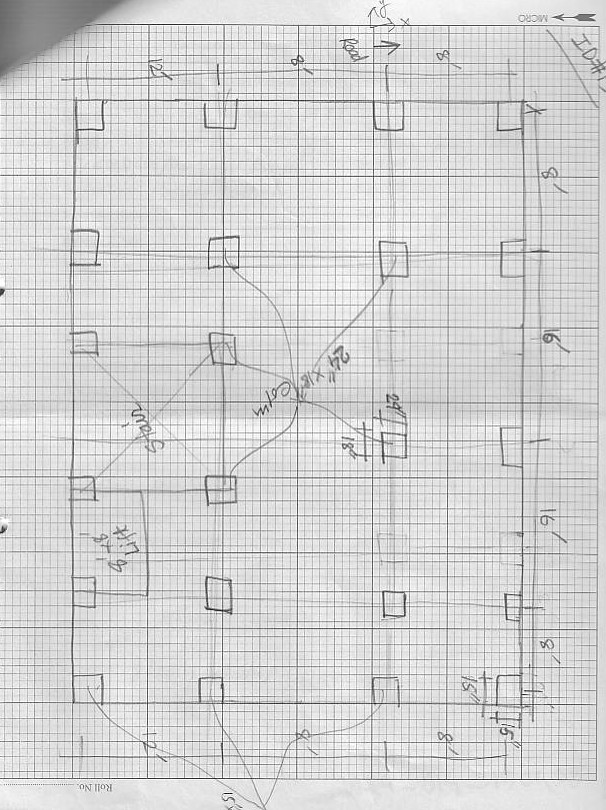 MICRO
ID#1
Road
12'
8'
8'
8'
16'
16'
8'
24" x 18"
Colm
24"
18"
Stair
Lift
8' x 8'
15"
15"
12'
8'
8'
15"
Roll No.